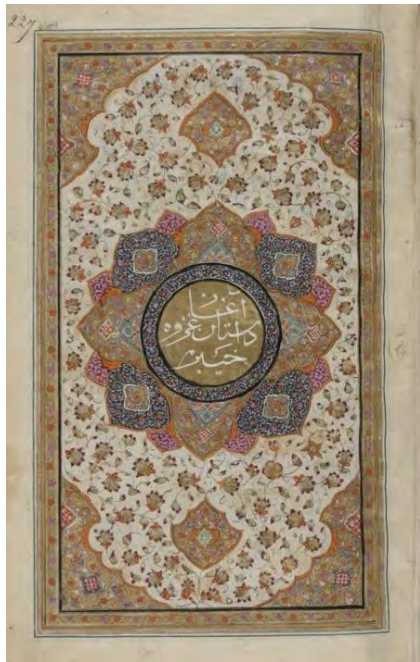 227
آغاز
داستان غزوه
خیبر